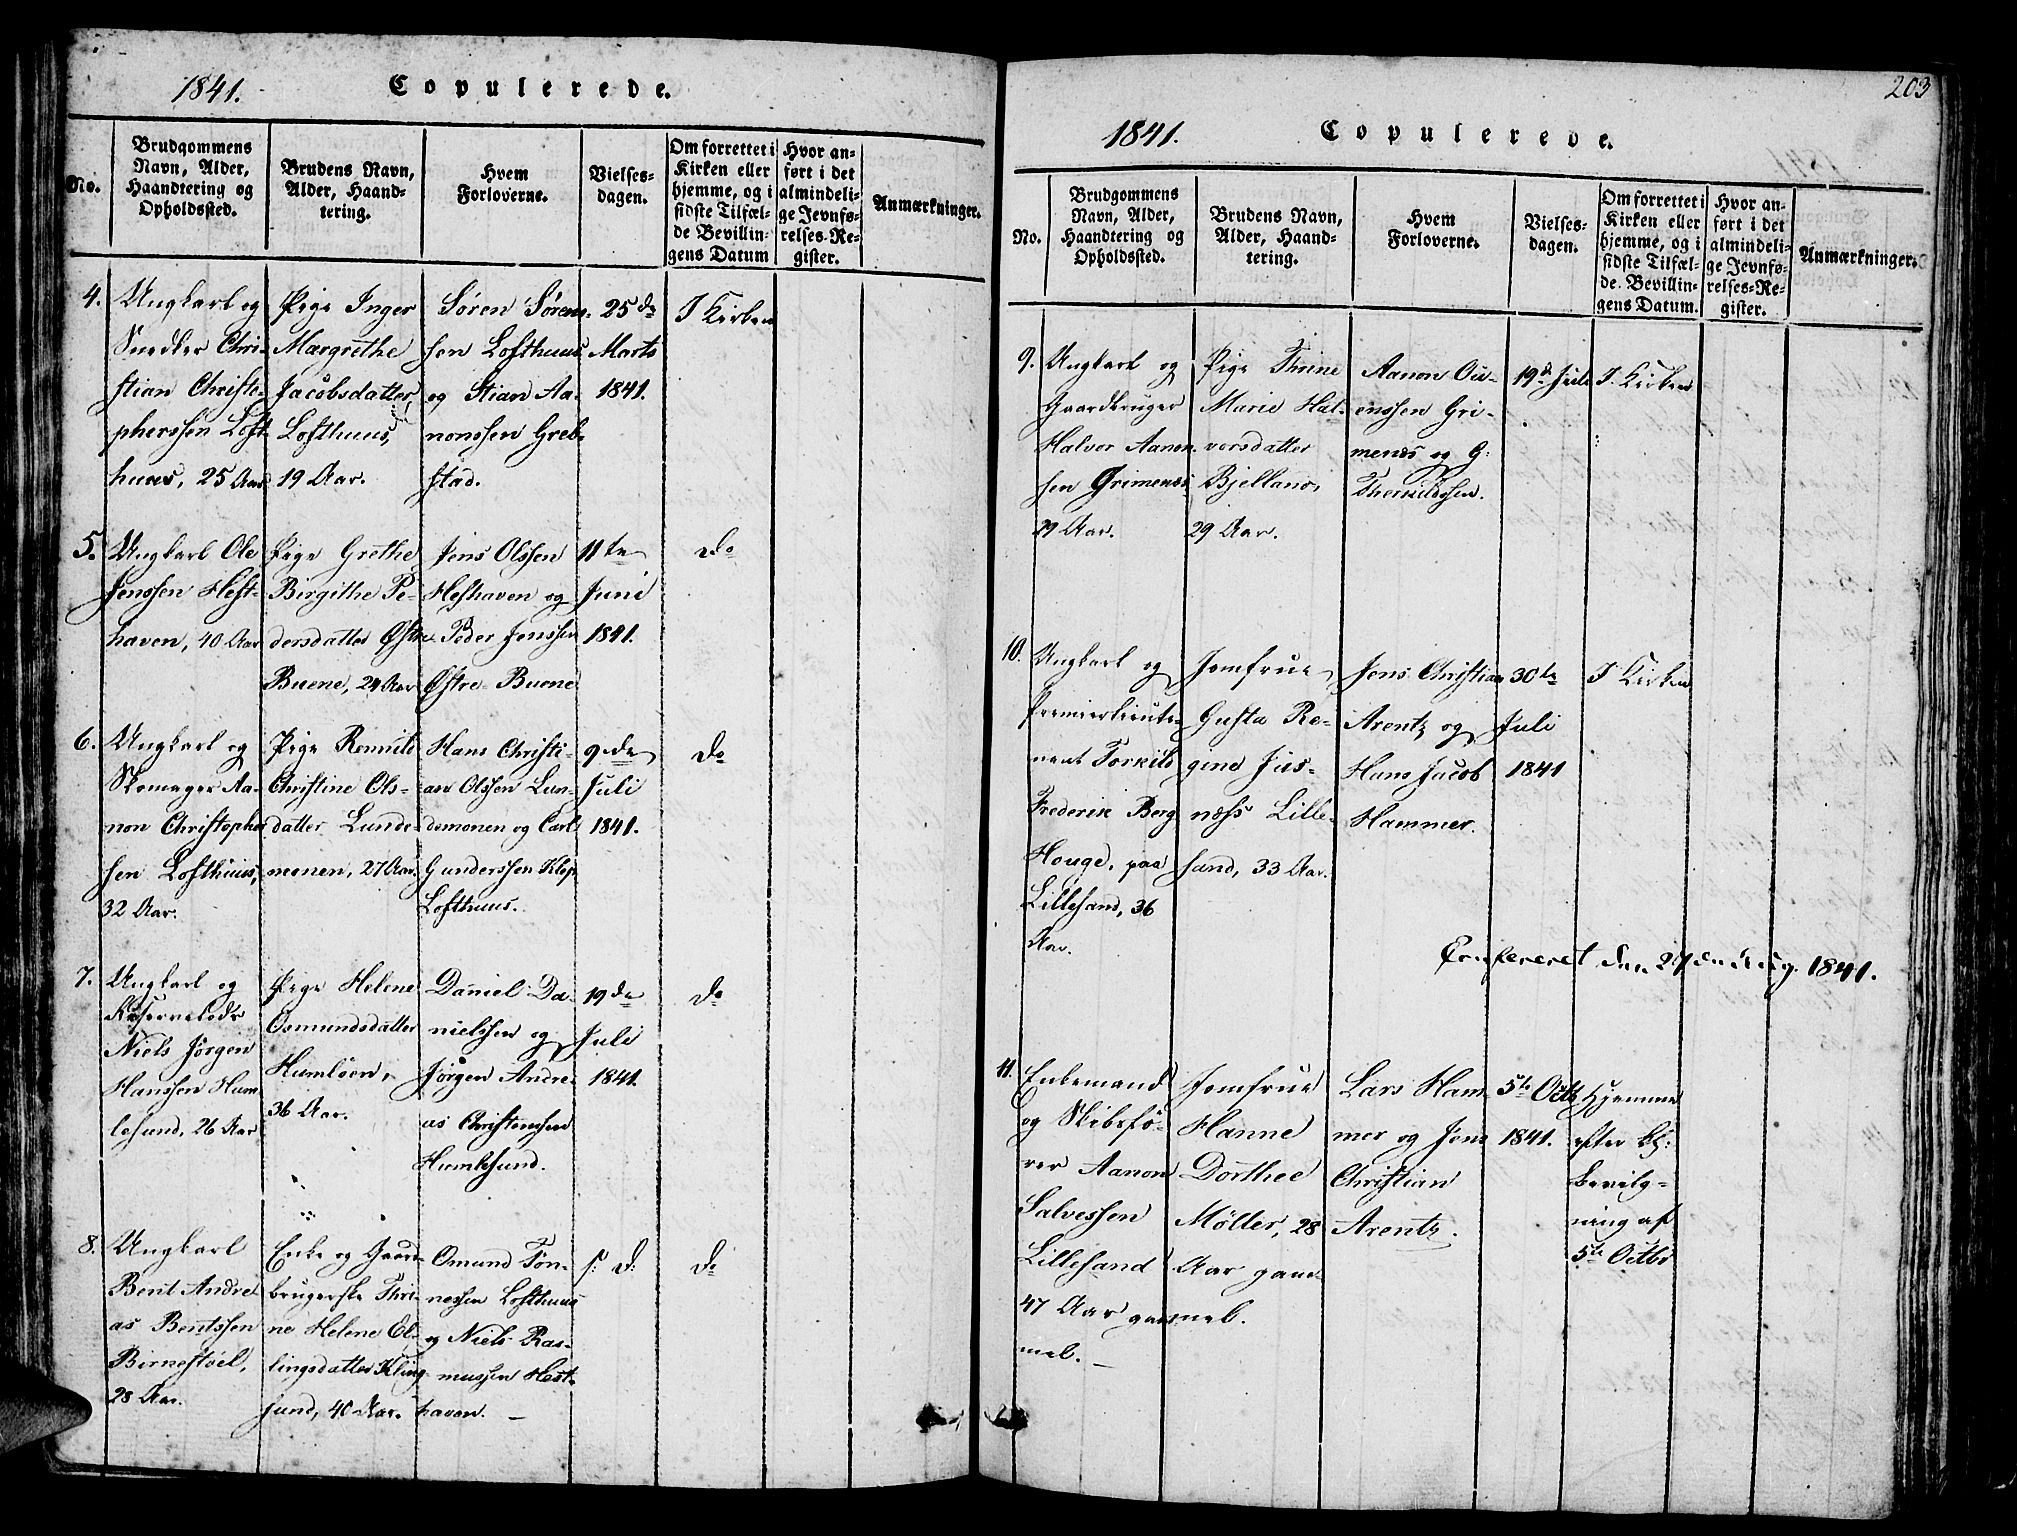 1841. Copulerede.
No.
Brudgommens
Navn, Alder,
Haandtering og
Opholdssted.
Brudens Navn,
Alder, Haand-
tering.
Hvem
Forloverne.
Vielses-
dagen.
Om forrettet i
Kirken eller
hjemme, og i
sidste Tilfæl-
de Bevillin-
gens Datum
Hvor an-
ført i det
almindeli-
ge Jevnfø-
relses-Re-
gister.
Anmærkninger.
4.
Ungkarl og
Snedker Chri-
stian Christo-
pherssen Loft-
huus, 25 Aar
Pige Inger
Margrethe
Jacobsdatter
Lofthuus,
19 Aar.
Søren Søren-
sen Lofthuus
og Stian Aa-
nonssen Greb-
stad.
25de
Marts
1841.
I Kirken
5.
Ungkarl Ole
Jenssen Hest-
haven, 40 Aar
Pige Grethe
Birgithe Pe-
dersdatter Østre
Buene, 24 Aar
Jens Olssen
Hesthaven og
Peder Jenssen
Østre Buene
11te
Juni
1841.
Do
6.
Ungkarl og
Skomager Aa-
non Christopher
sen Lofthuus,
32 Aar.
Pige Romuli
Christine Ols-
datter Lunde-
monen, 27 Aar.
Hans Christi-
an Olssen Lun-
demonen og Carl
Gunderssen Klep
Lofthuus.
9de
Juli
1841.
Do
7.
Ungkarl og
Niels Jørgen
Hanssen Hum
lesund, 26 Aar
Pige Helene
Osmundsdatter
Humlöen,
36 Aar.
Daniel Da-
nielssen og
Jørgen Andre-
as Christenssen
Humlesund.
19de
Juli
1841.
Do
8.
Ungkarl
Bent Andre-
as Bentssen
Birnestöel,
28 Aar.
Enke og Gaard-
brugerske Thri-
ne Helene El-
lingsdatter Kling-
sund, 40 Aar.
Omund Tøn-
nessen Lofthuus
og Niels Ras-
mussen Hest-
haven. —
s: D:
Do
203
1841. Copulerede.
No.
Brudgommens
Navn, Alder,
Haandtering og
Opholdssted.
Brudens Navn,
Alder, Haand-
tering.
Hvem
Forloverne.
Vielses-
dagen.
Om forrettet i
Kirken eller
hjemme, og i
sidste Tilfæl-
de. Bevillin-
gens Datum.
Hvor an-
ført i det
almindeli-
ge Jevnfø-
relses-Re-
gister.
Anmærkninger.
9.
Ungkarl og
Gaardbruger
Halvor Aanon-
sen Grimenes
29 Aar.
Pige Thrine
Marie Hal-
vorsdatter
Bjelland,
29 Aar.
Aanon Ou-
enssen Gri-
menes og G:
Therkildssen.
19de Juli
I Kirken
10.
Ungkarl og
Premierlieute-
nant Torkild
Frederik Berg
Houge, paa
Lillesand, 36
Aar.
Jomfrue
Gusta Re-
gine Jus-
næss Lille-
sand, 33 Aar.
Jens Christian
Arentz og
Hans Jacob
Hammer.
30te
Juli
1841
I Kirken
Confereret den 27de Aug. 1841.
11.
Enkemand
og Skibsfø-
rer Aanon
Salvessen
Lillesand
47 Aar gam-
mel. —
Jomfrue
Hanne
Dorthee
Möller, 28
Aar gam-
mel.
Lars Ham-
mer og Jens
Christian
Arentz.
5te Octb
1841.
Hjemme
efter Kl:
Bevilg-
ning af
5te Octbr